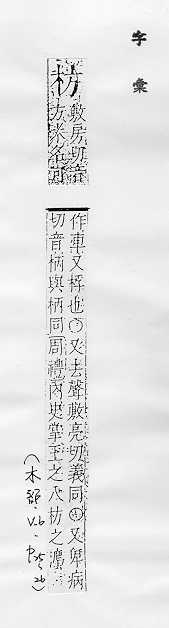 字彙
枋
敷房切音
方木名可
作車又枰也○又去聲敷亮切義同○又卑病
切音柄與柄同周禮內史掌王之八枋之灋
(木部.